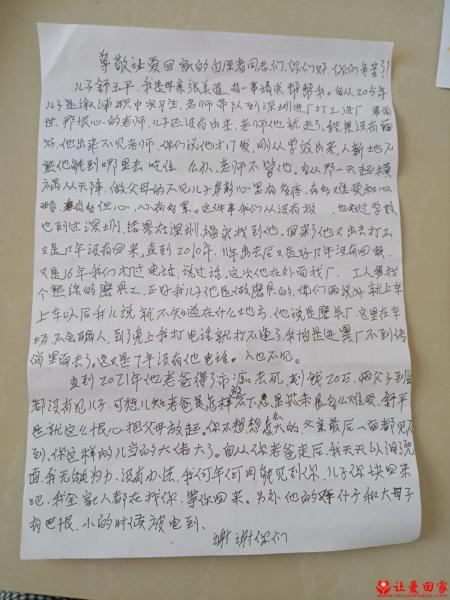 尊敬让爱回家的自愿者同志们.你们好.你们辛苦了!
儿子舒平.我是母亲张美莲.有一事请求 帮帮我.自从2005年
儿子是溆浦职中实习生.老师带队到深圳进厂打工.进厂
世.那狠心的老师.儿子还没有出来.老师他就走了.结果没有面
好.他出来不见老师.你们说他才17岁.刚从学校出来.人新地不
熟他能到哪里去吃住 么办.老师不管他.自从那一天起横
祸从天降.做父母的不见儿子身影心里有多疼.有多难受和心
酸.有多担心.心有多累.这件事我们从没有放 .也到过学校
也到过深圳.结果在深圳.确实找到他.回来了他又出去打工
又是几年没有回来.直到2010年.1年出去后又是好几年没有回家.
又是16年我们打过电话.说过话.这次他在外面找厂.工人要找
个熟练的磨具工.正好我儿子他是做磨具的.他们两说好就上车
上车以后我儿说就不知道在什么地方.他说是磨具厂.这里在车
场.不会骗人.到了晚上我打电话就打不通了.我怕是进黑厂不到传
销里面去了.这又是7年没有他电话.人也不见.
直到2021年他老爸得了 .去死.花钱20万.两父子到
都没有见儿子.可想儿知老爸是怎样 .是多么难受.舒平
是就这么恨心把父母放起.你不想想 的父亲最后一面都见不
到.你这样的儿当的大错大了.自从你老爸走后.我天天以泪洗
面.我无能为力.没有办法.我何年何月能见到你.儿子你快回来
吧.我全家人都在找你.等你回来.另外他的 什子和大母子
有巴恨.小的时候被电到.
谢谢你们
让爱回家